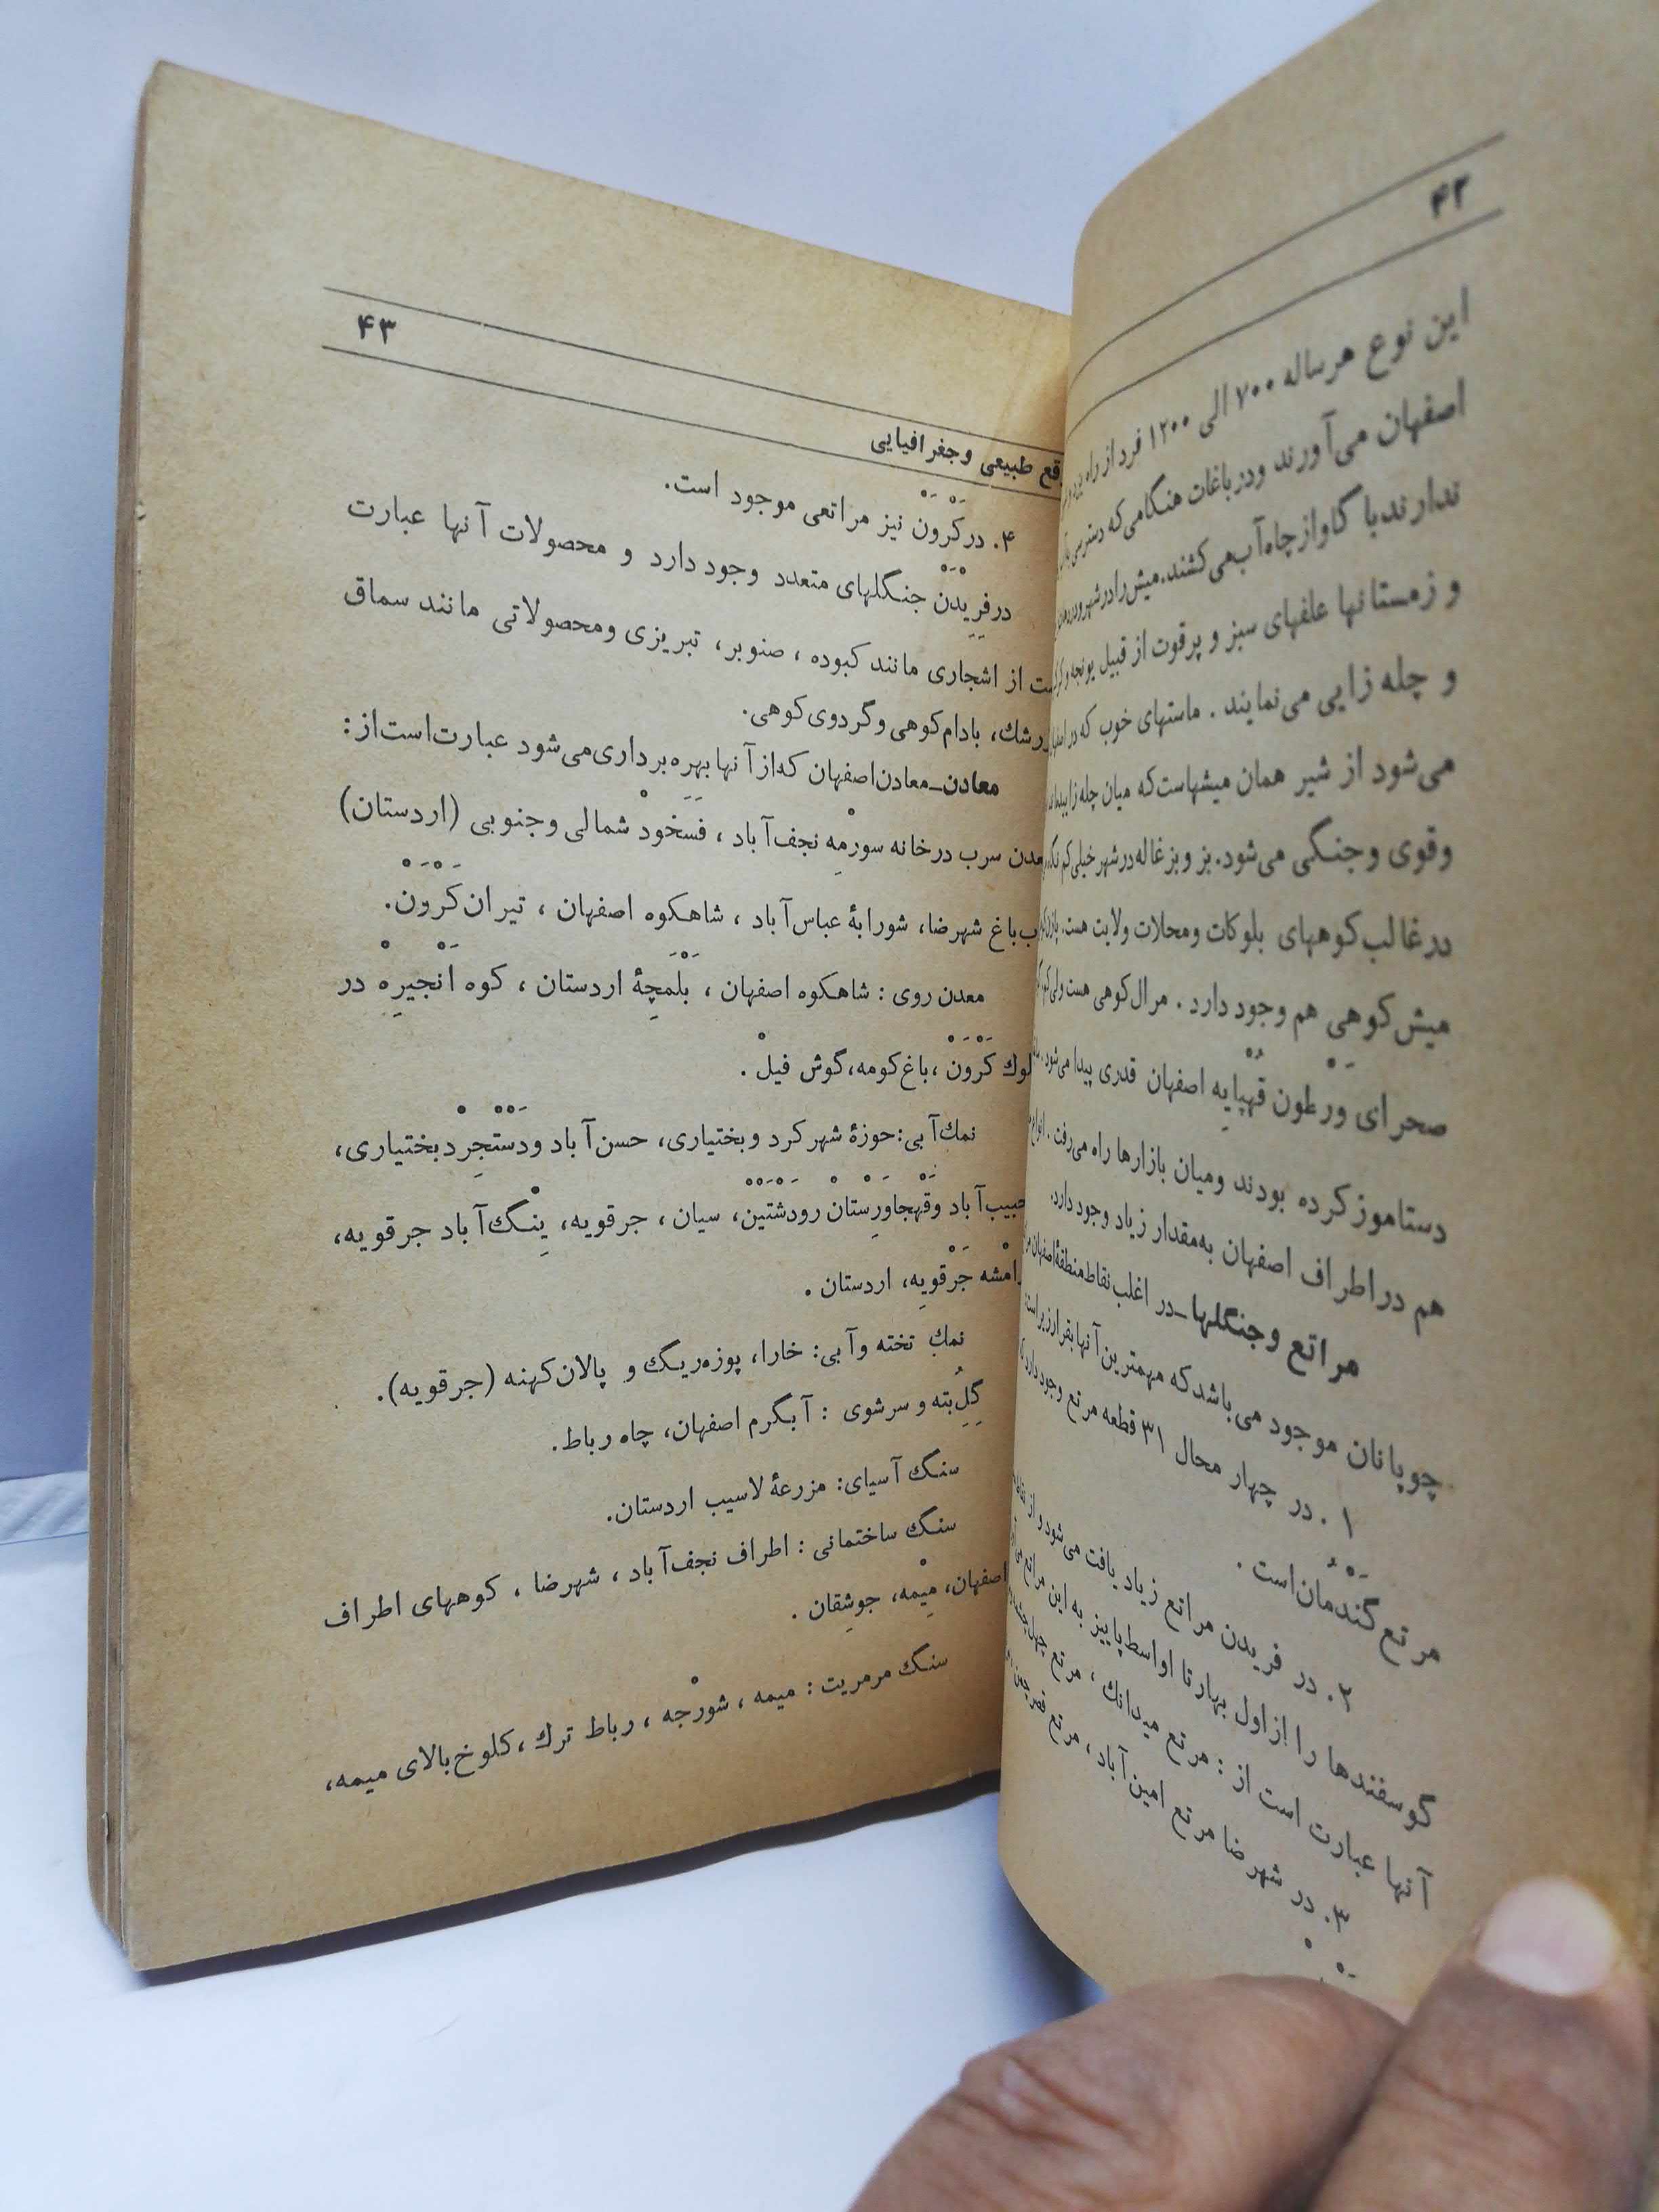 ۴۲
این نوع هرساله ۷۰۰ الی ۱۲۰۰ فرد از راه
اصفهان می‌آورند ودرباغات هنگامی‌که دسترسی
ندارند با گاو از چاه آب می‌کشند. میش را درشهر
و زمستانها علفهای سبز و پرقوت از قبیل یونجه و
و چله زایی می‌نمایند . ماستهای خوب که در
می‌شود از شیر همان میشهاست‌که میان چله
وقوی وجنگی می‌شود. بز و بزغاله درشهر خیلی کم
درغالب‌کوههای بلوکات ومحلات ولایت هست.
میش‌کوهی هم وجود دارد . مرال‌کوهی هست ولی کم
صحرای ورطون قُهْپایِه اصفهان قدری پیدا می‌شود.
دستاموزکرده بودند ومیان بازارها راه می‌رفت . انواع
هم دراطراف اصفهان به‌مقدار زیاد وجود دارد.
مراتع وجنگلها_در اغلب نقاط منطقهٔ اصفهان
چوپانان موجود می‌باشد که مهمترین آنها بقرار زیر است:
۱ . در چهار محال ۳۱ قطعه مرتع وجود دارد
مرتع گَنْدُمان است .
۲. در فریدن مراتع زیاد یافت می‌شود و از
گوسفندها را از اول بهار تا اواسط پاییز به این مراتع
آنها عبارت است از : مرتع میدانك ، مرتع چهل
۳. در شهرضا مرتع امین‌آباد ، مرتع
۴۳
طبیعی وجغرافیایی
۴. درکَرْوَنْ نیز مراتعی موجود است.
درفِرِیْدَنْ جنگلهای متعدد وجود دارد و محصولات آنها عبارت
از اشجاری مانند کبوده ، صنوبر، تبریزی ومحصولاتی مانند سماق
بادام‌کوهی وگردوی‌کوهی.
معادن_معادن‌اصفهان که‌از آنها بهره‌برداری‌می‌شود عبارت‌است‌از:
سرب درخانه سورْمِه نجف‌آباد ، فَسَخْود شمالی وجنوبی (اردستان)
باغ شهرضا، شورابهٔ عباس‌آباد ، شاهکوه اصفهان ، تیران‌کَرْوَنْ.
معدن روی : شاهکوه اصفهان ، بَلْمَچِهٔ اردستان ، کوه اَنْجیرِهْ در
کَرْوَنْ ،باغ‌کومه،گوش فیلْ .
نمك‌آبی:حوزهٔ شهرکرد وبختیاری، حسن‌آباد ودَسْتْجِرْد بختیاری،
حبیب‌آباد وَقْهجاوَرِسْتانْ رودَشْتَیْنْ، سیان ، جرقویه، یِنْگ‌آباد جرقویه،
جَرْقویِه، اردستان .
نمك تخته وآبی: خارا، پوزه‌ریگ و پالان‌کهنه (جرقویه).
گِلِ‌بُته و سرشوی : آبگرم اصفهان، چاه رباط.
سنگ آسیای: مزرعهٔ لاسیب اردستان.
سنگ ساختمانی : اطراف نجف‌آباد ، شهرضا ، کوههای اطراف
اصفهان، مِیْمه، جوشِقان .
سنگ مرمریت : میمه ، شورْجه ، رباط ترك ،کلوخ‌بالای میمه،